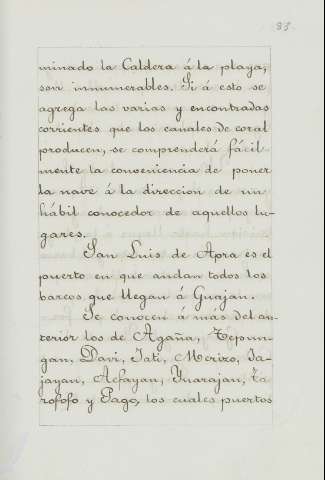 83.
minado la Caldera á la playa,
son innumerables. Si á esto se
agrega las varias y encontradas
corrientes que los canales de coral
producen, se comprenderá fácil-
mente la conveniencia de poner
la nave á la direccion de un
hábil conocedor de aquellos lu-
gares.
San Luis de Apra es el
puerto en que andan todos los
barcos que llegan á Guajan.
Se conocen á más del an-
terior los de Agaña, Tepun-
gan, Davi, Tati, Merizo, Ja-
jayan, Acfayan, Ynarajan, Ta
rofofo y Pago, los cuales puertos